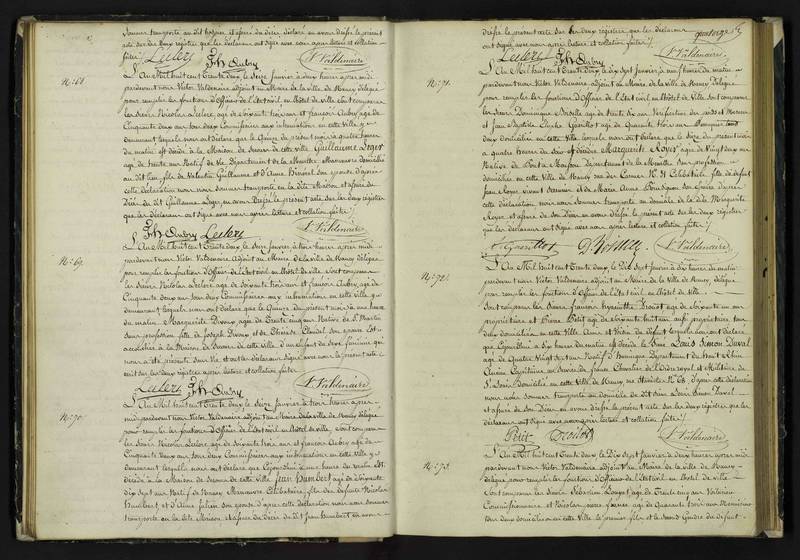 Sommes transporté au dit hospice et assuré du décès déclaré en avons dressé le présent
acte sur les deux registres que les déclarans ont signé avec nous après lecture et collation
faite
Leclerc fçs Aubry V. Valdenaire
N°. 68.
L'An Mil huit cent Trente deux, le seize Janvier à deux heures après midi
pardevant nous Victor Valdenaire adjoint au Maire de la ville de Nancy délégué
pour remplir les fonctions d'officier de l'état civil en l'hôtel de ville sont comparus
les Sieurs Nicolas Leclerc, agé de soixante trois ans et françois Aubry agé de
Cinquante deux ans tous deux Commissaires aux inhumations en cette ville y
demeurant lesquels nous ont déclaré que le Quinze du présent mois à quatre heures
du matin est décédé à la Maison de Secours de cette ville Guillaume Leger
agé de trente ans Natif de Vic Département de la Meurthe Manœuvre domicilié
au dit lieu, fils de Valentin Guillaume et d'Anne son épouse d'après
cette déclaration nous nous sommes transporté en la dite Maison et assuré du
Décès du dit Guillaume Leger en avons Dressé le présent acte sur les deux registres
que les déclarans ont signé avec nous après lecture et collation faite
fçs Aubry Leclerc V. Valdenaire
N°. 69.
L'An Mil huit cent Trente deux le Seize Janvier, à trois heures après midi
pardevant nous Victor Valdenaire Adjoint au Maire de la ville de Nancy délégué
pour remplir les fonctions d'officier de l'état civil en l'hôtel de ville sont comparus
les Sieurs Nicolas Leclerc agé de soixante trois ans et françois Aubry, agé de
Cinquante deux ans tous deux Commissaires aux inhumations en cette ville y
demeurant lesquels nous ont déclaré que le Quinze du présent mois à une heure
du matin Marguerite agée de Trente cinq ans Native de St. Martin
Sans profession fille de Joseph et de Thérèse Claudel son épouse est
accouchée à la Maison de Secours de cette ville d'un enfant du sexe féminin qui
nous a été présenté Sans Vie et ont les déclarans Signé avec nous le présent acte
écrit sur les deux registres après lecture et collation faite
Leclerc fçs Aubry V. Valdenaire
N°. 70.
L'An Mil huit cent Trente deux, le Seize Janvier à trois heures après
midi pardevant nous Victor Valdenaire adjoint au Maire de la ville de Nancy délégué
pour remplir les fonctions d'officier de l'état civil en l'hôtel de ville sont comparus
les Sieurs Nicolas Leclerc agé de Soixante trois ans et françois Aubry agé de
Cinquante deux ans tous deux Commissaires aux inhumations en cette ville y
demeurant lesquels nous ont déclaré que Cejourd'hui à une heure du matin est
décédé à la Maison de Secours de cette ville Jean Humbert agé de Soixante
dix sept ans Natif de Nancy Manœuvre Célibataire fils des défunts Nicolas
Humbert, et d'Anne Julien son épouse d'après cette déclaration nous nous sommes
transporté en la dite Maison et assuré du décès du dit Jean Humbert en avons
quatorze
dressé le présent acte sur les deux registres que les déclarans
ont signé avec nous après lecture et collation faite
Leclerc fçs Aubry V. Valdenaire
N°. 71.
L'An Mil huit cent Trente deux, le dix Sept Janvier à onze heures du matin
pardevant nous Victor Valdenaire adjoint au Maire de la ville de Nancy délégué
pour remplir les fonctions d'officier de l'état civil en l'hôtel de ville sont comparus
les Sieurs Dominique agé de trente six ans Vérificateur des poids et Mesures
et Jean Baptiste agé de Quarante trois ans
deux domiciliés en cette ville lesquels nous ont déclaré que le Seize du présent mois
à quatre heures du soir est décédée Marguerite Royer agée de Vingt deux ans
Native de Pont à Mousson Département de la Meurthe Sans profession
domiciliée en cette ville de Nancy rue des Carmes N°. 31 Célibataire fille de défunt
Jean Royer et de Marie Anne son épouse d'après
cette déclaration nous nous Sommes transporté au domicile de la dite Marguerite
Royer et assuré de son Décès en avons dressé le présent acte sur les deux registres
que les déclarans ont signé avec nous après lecture et collation faite
V. Valdenaire
N°. 72.
L'An Mil huit cent Trente deux le Dix Sept Janvier à dix heures du matin
pardevant nous Victor Valdenaire adjoint au Maire de la ville de Nancy, délégué
pour remplir les fonctions d'officier de l'état civil en l'hôtel de ville
Sont comparus les Sieurs françois agé de Soixante un ans
propriétaire et Pierre Petit agé de Soixante huit ans aussi propriétaire tous
deux domiciliés en cette ville Amis et Voisin du défunt lesquels nous ont déclaré
que Cejourd'hui à six heures du matin est décédé le Sieur Louis Simon Duval
agé de Quatre Vingt Sept ans Natif d'Huningue Département du haut Rhin
Ancien Capitaine au Service de france Chevalier de l'ordre royal et Militaire de
St. Louis domicilié en cette ville de Nancy rue Stanislas N°. d'après cette déclaration
nous nous sommes transporté au domicile du dit Sieur Louis Simon Duval
et assuré de son Décès en avons dressé le présent acte sur les deux registres que les
déclarans ont signé avec nous après lecture et collation faite
Petit V. Valdenaire
N°. 73.
L'An Mil huit cent Trente deux le Dix Sept Janvier à deux heures après midi
pardevant nous Victor Valdenaire adjoint au Maire de la ville de Nancy
délégué pour remplir les fonctions d'officier de l'état civil en l'hôtel de ville
Sont comparus les Sieurs Sébastien agé de Trente cinq ans
Commissionnaire et Nicolas agé de Quarante trois ans
tous deux domiciliés en cette ville le premier fils et le second Gendre du défunt